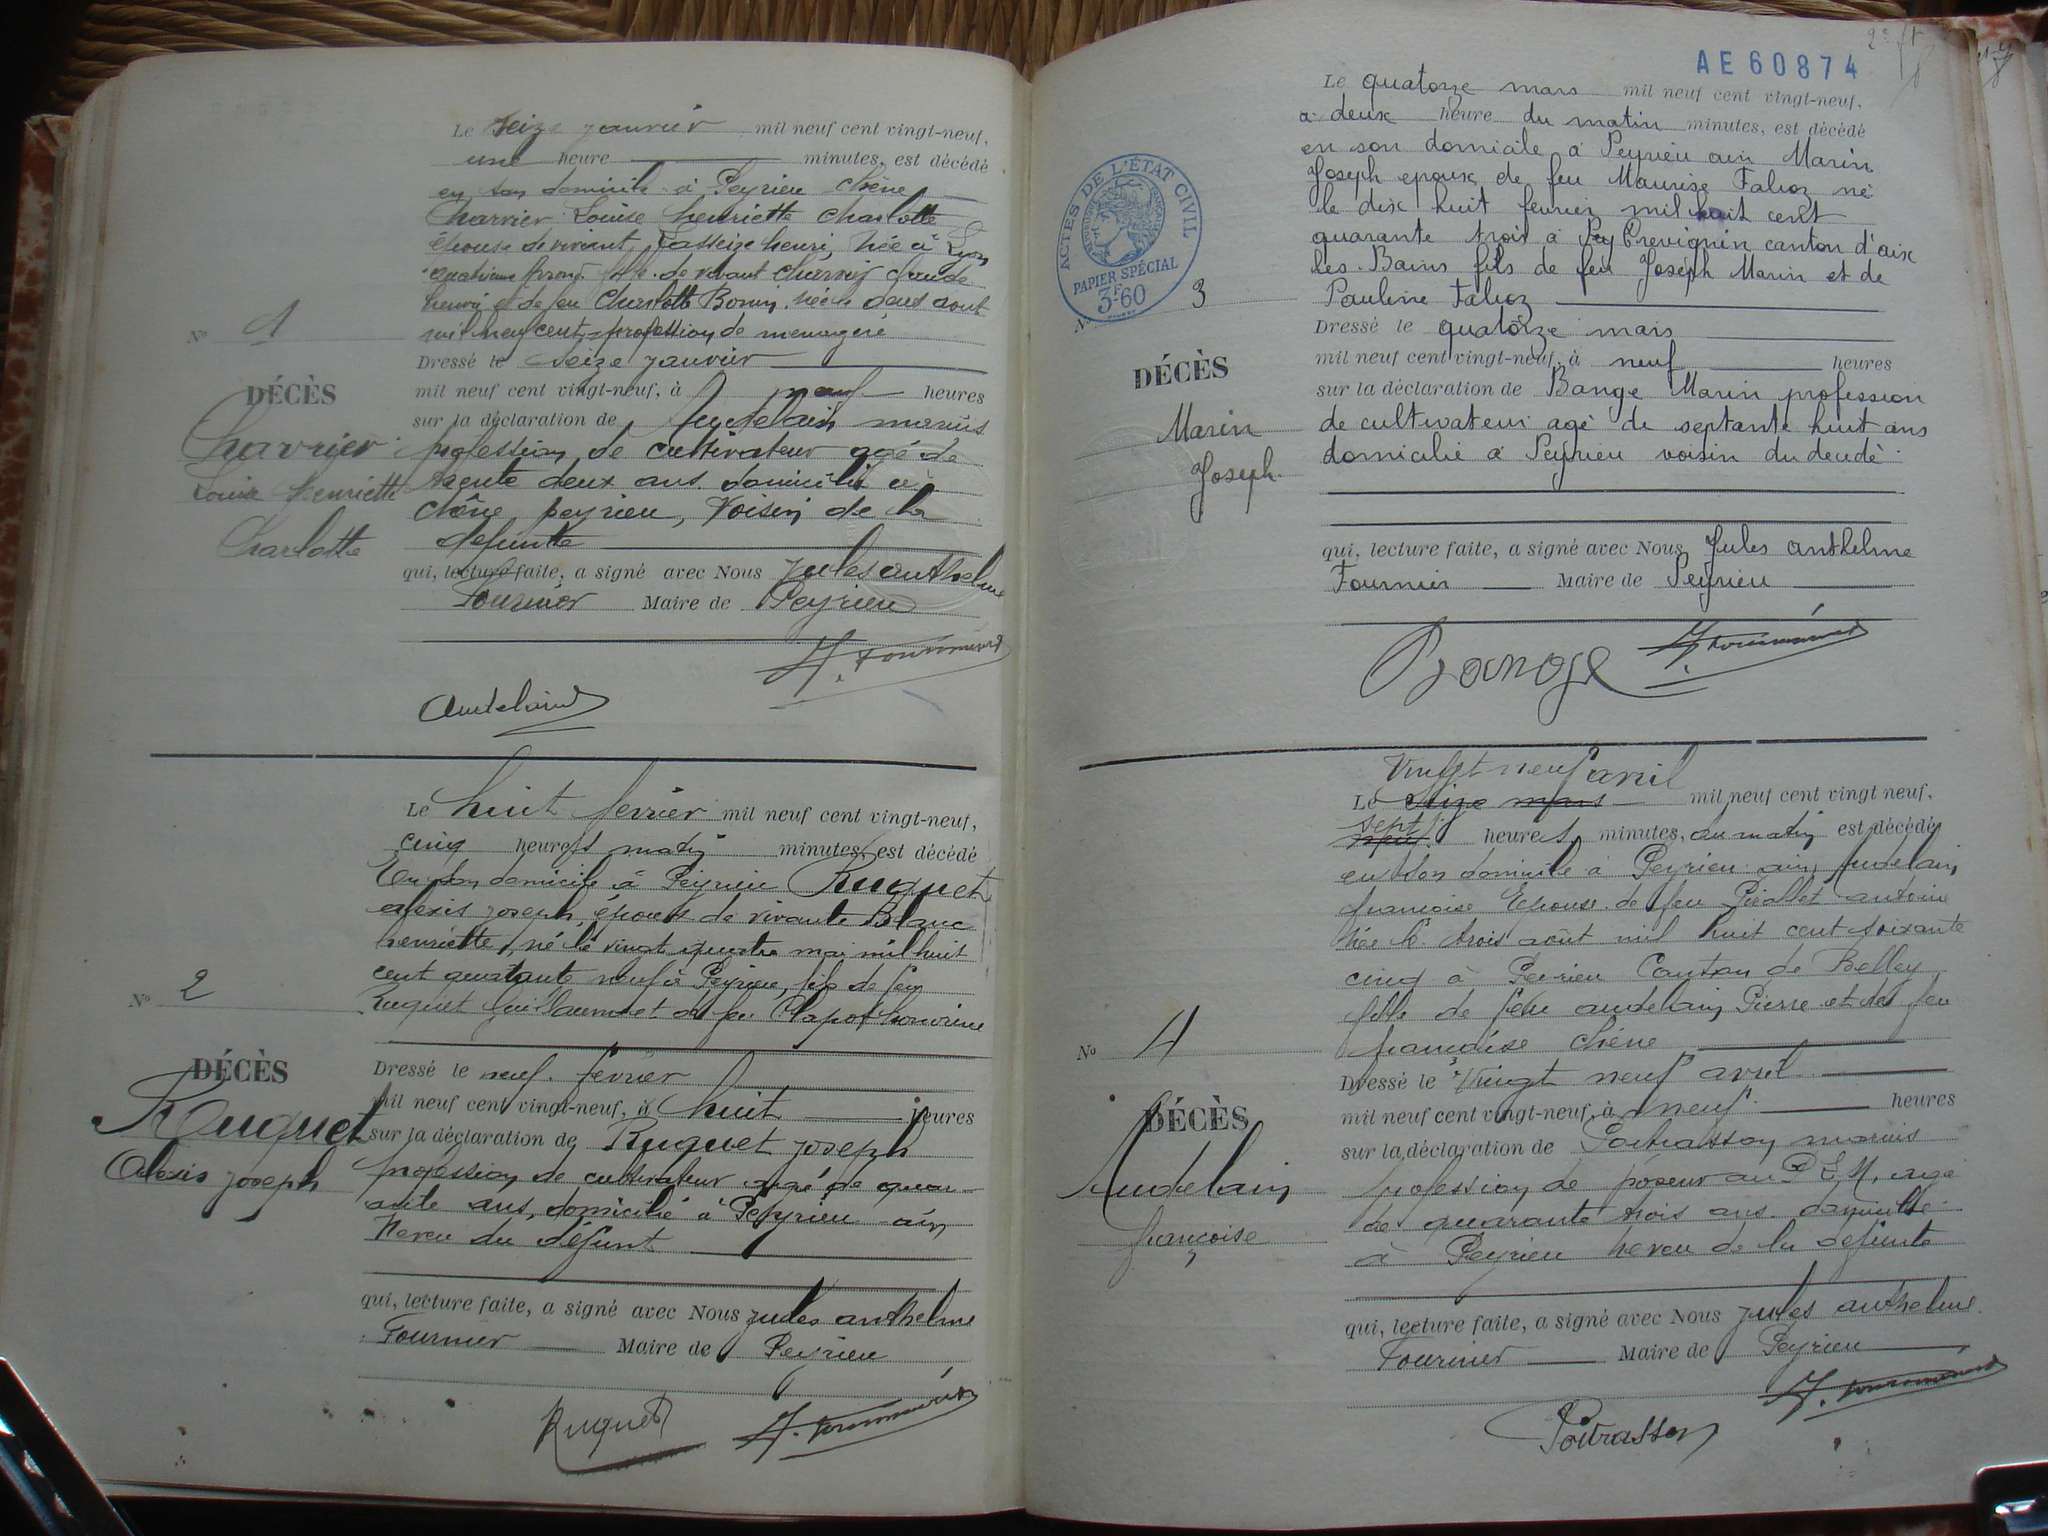 Le seize janvier mil neuf cent vingt-neuf,
une heure minutes, est décédé
en son domicile à Peyrieu chêne
Charvier Louise henriette charlotte
épouse de vivant henri, née à Lyon
fille de vivant
henri et de feu Charlotte née le deux aout
mil neuf cent, profession de menagère
Dressé le seize janvier
mil neuf cent vingt-neuf, à neuf heures
sur la déclaration de Audelain marius
profession de cultivateur agé de
trente deux ans domicilié à
chêne peyrieu, Voisin de la
defunte
qui, lecture faite, a signé avec Nous Jules anthelme
Fournier Maire de Peyrieu
Audelain
Nº 1
DÉCÈS
Charvier
Louise henriette
Charlotte
Le huit fevrier mil neuf cent vingt-neuf,
cinq heures matin minutes, est décédé
En son domicile à Peyrieu Ruguet
alexis joseph, époux de vivante Blanc
henriette, né le vingt quatre mai mil huit
cent quarante neuf à Peyrieu, fils de feu
Ruguet Guillaume et de feu
Dressé le neuf fevrier
mil neuf cent vingt-neuf, à huit heures
sur la déclaration de Ruguet joseph
profession de cultivateur agé de quar-
ante ans, domicilié à Peyrieu ain
Neveu du défunt
qui, lecture faite, a signé avec Nous jules anthelme
Fournier Maire de Peyrieu
Ruguet
Nº 2
DÉCÈS
Ruguet
Alexis joseph
AE60874
Le quatorze mars mil neuf cent vingt-neuf,
a deux heure du matin minutes, est décédé
en son domicile a Peyrieu ain Marin
Joseph epoux de feu Maurise Falcoz né
le dix huit fevrier mil huit cent
quarante trois a Pugtrevignin canton d'aix
les Bains fils de feu Joseph Marin et de
Pauline Falcoz
Dressé le quatorze mars
mil neuf cent vingt-neuf, à neuf heures
sur la déclaration de Bange Marin profession
de cultivateur agé de septante huit ans
domicilié a Peyrieu voisin du decedé
qui, lecture faite, a signé avec Nous Jules anthelme
Fournier Maire de Peyrieu
Bange
ACTES DE L'ÉTAT CIVIL
PAPIER SPÉCIAL
3F.60
Nº 3
DÉCÈS
Marin
Joseph
Vingt neuf avril
Le seize mars mil neuf cent vingt neuf.
sept
heures minutes, du matin est décédé
en son domicile à Peyrieu ain Audelain
françoise Epouse de feu antoine
née le trois août mil huit cent soixante
cinq à Peyrieu Canton de Belley
fille de feu audelain Pierre et de feu
françoise chêne
Dressé le Vingt neuf avril
mil neuf cent vingt-neuf, à neuf heures
sur la déclaration de Poitrasson marius
profession de poseur au P L M, agé
de quarante trois ans domicilié
à Peyrieu neveu de la défunte
qui, lecture faite, a signé avec Nous jules anthelme
Fournier Maire de Peyrieu
Poitrasson
Nº 4
DÉCÈS
Audelain
françoise